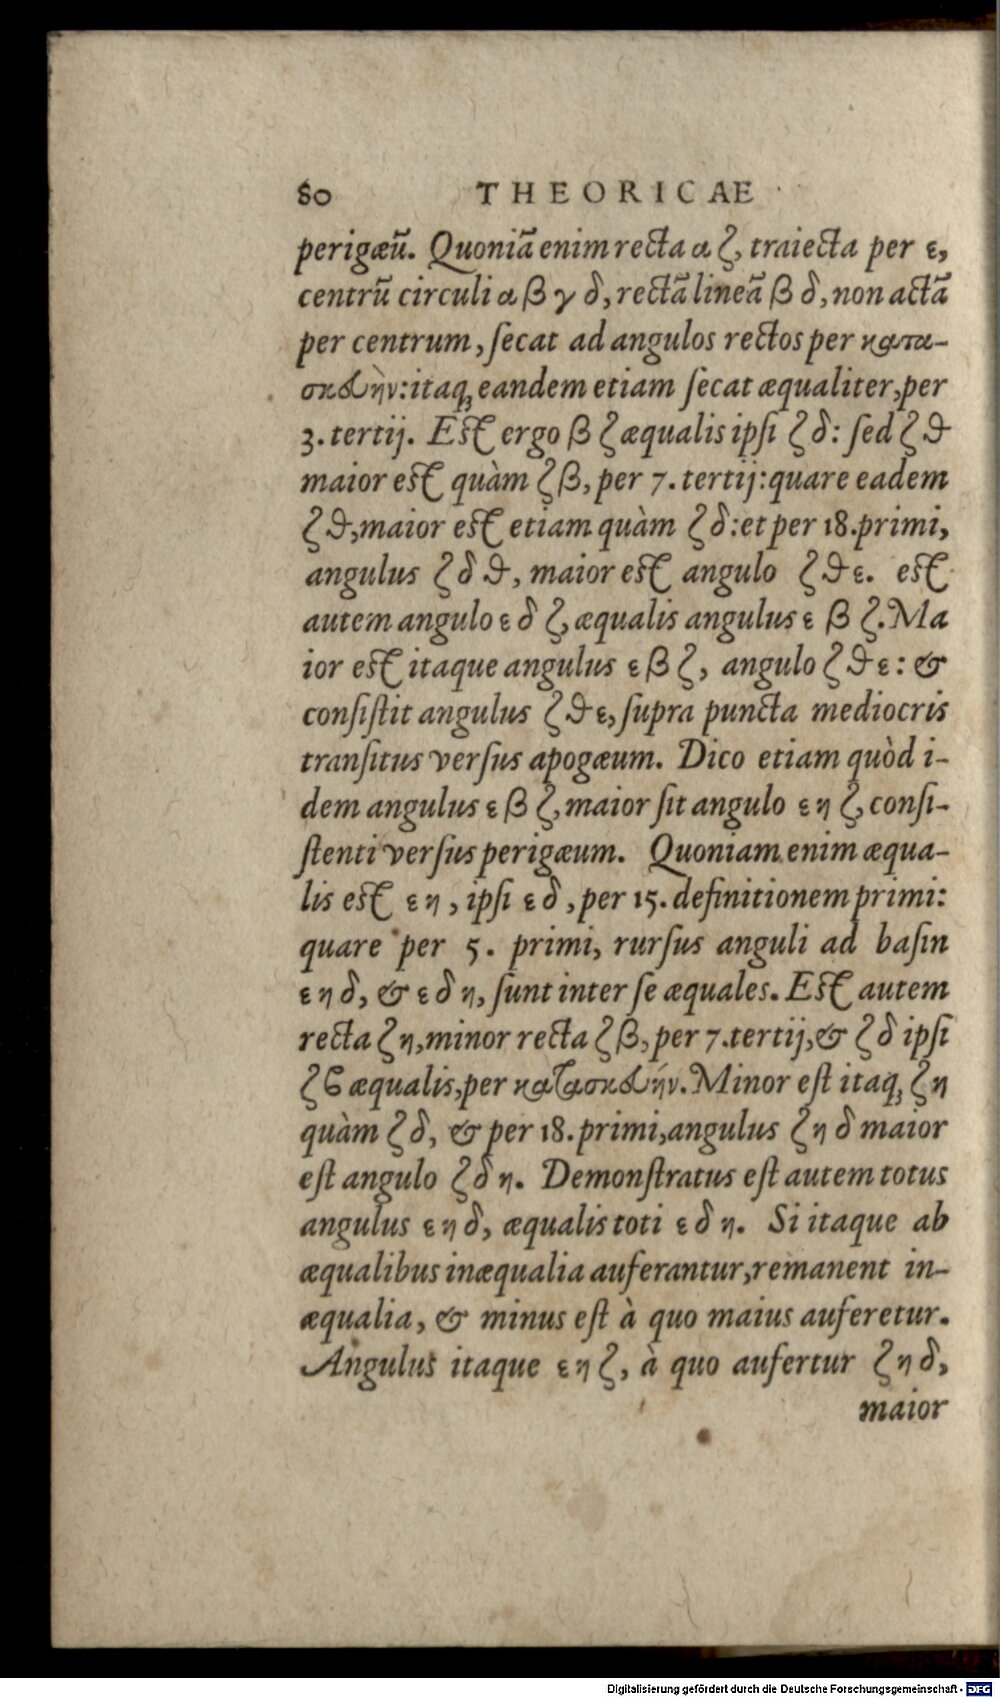 80 THEORICAE
perigæũ. Quoniã enim recta α ζ, traiecta per ε,
centrũ circuli α β γ δ, rectã lineã β δ, non actã
per centrum, ſecat ad angulos rectos per κατα-
σκευὴν: itaq; eandem etiam ſecat æqualiter, per
3. tertij. Eſt ergo β ζ æqualis ipſi ζ δ: ſed ζ ϑ
maior eſt quàm ζ β, per 7. tertij: quare eadem
ζ ϑ, maior eſt etiam quàm ζ δ: et per 18. primi,
angulus ζ δ ϑ, maior eſt angulo ζ ϑ ε. eſt
autem angulo ε δ ζ, æqualis angulus ε β ζ. Ma
ior eſt itaque angulus ε β ζ, angulo ζ ϑ ε: &
conſiſtit angulus ζ ϑ ε, ſupra puncta mediocris
tranſitus verſus apogæum. Dico etiam quòd i-
dem angulus ε β ζ, maior ſit angulo ε η ζ, conſi-
ſtenti verſus perigæum. Quoniam enim æqua-
lis eſt ε η, ipſi ε δ, per 15. definitionem primi:
quare per 5. primi, rurſus anguli ad baſin
ε η δ, & ε δ η, ſunt inter ſe æquales. Eſt autem
recta ζ η, minor recta ζ β, per 7. tertij, & ζ δ ipſi
ζ ϐ æqualis, per κατασκευήν. Minor eſt itaq; ζ η
quàm ζ δ, & per 18. primi, angulus ζ η δ maior
eſt angulo ζ δ η. Demonſtratus eſt autem totus
angulus ε η δ, æqualis toti ε δ η. Si itaque ab
æqualibus inæqualia auferantur, remanent in-
æqualia, & minus eſt à quo maius auferetur.
Angulus itaque ε η ζ, à quo aufertur ζ η δ,
maior
Digitalisierung gefördert durch die Deutsche Forschungsgemeinschaft - DFG